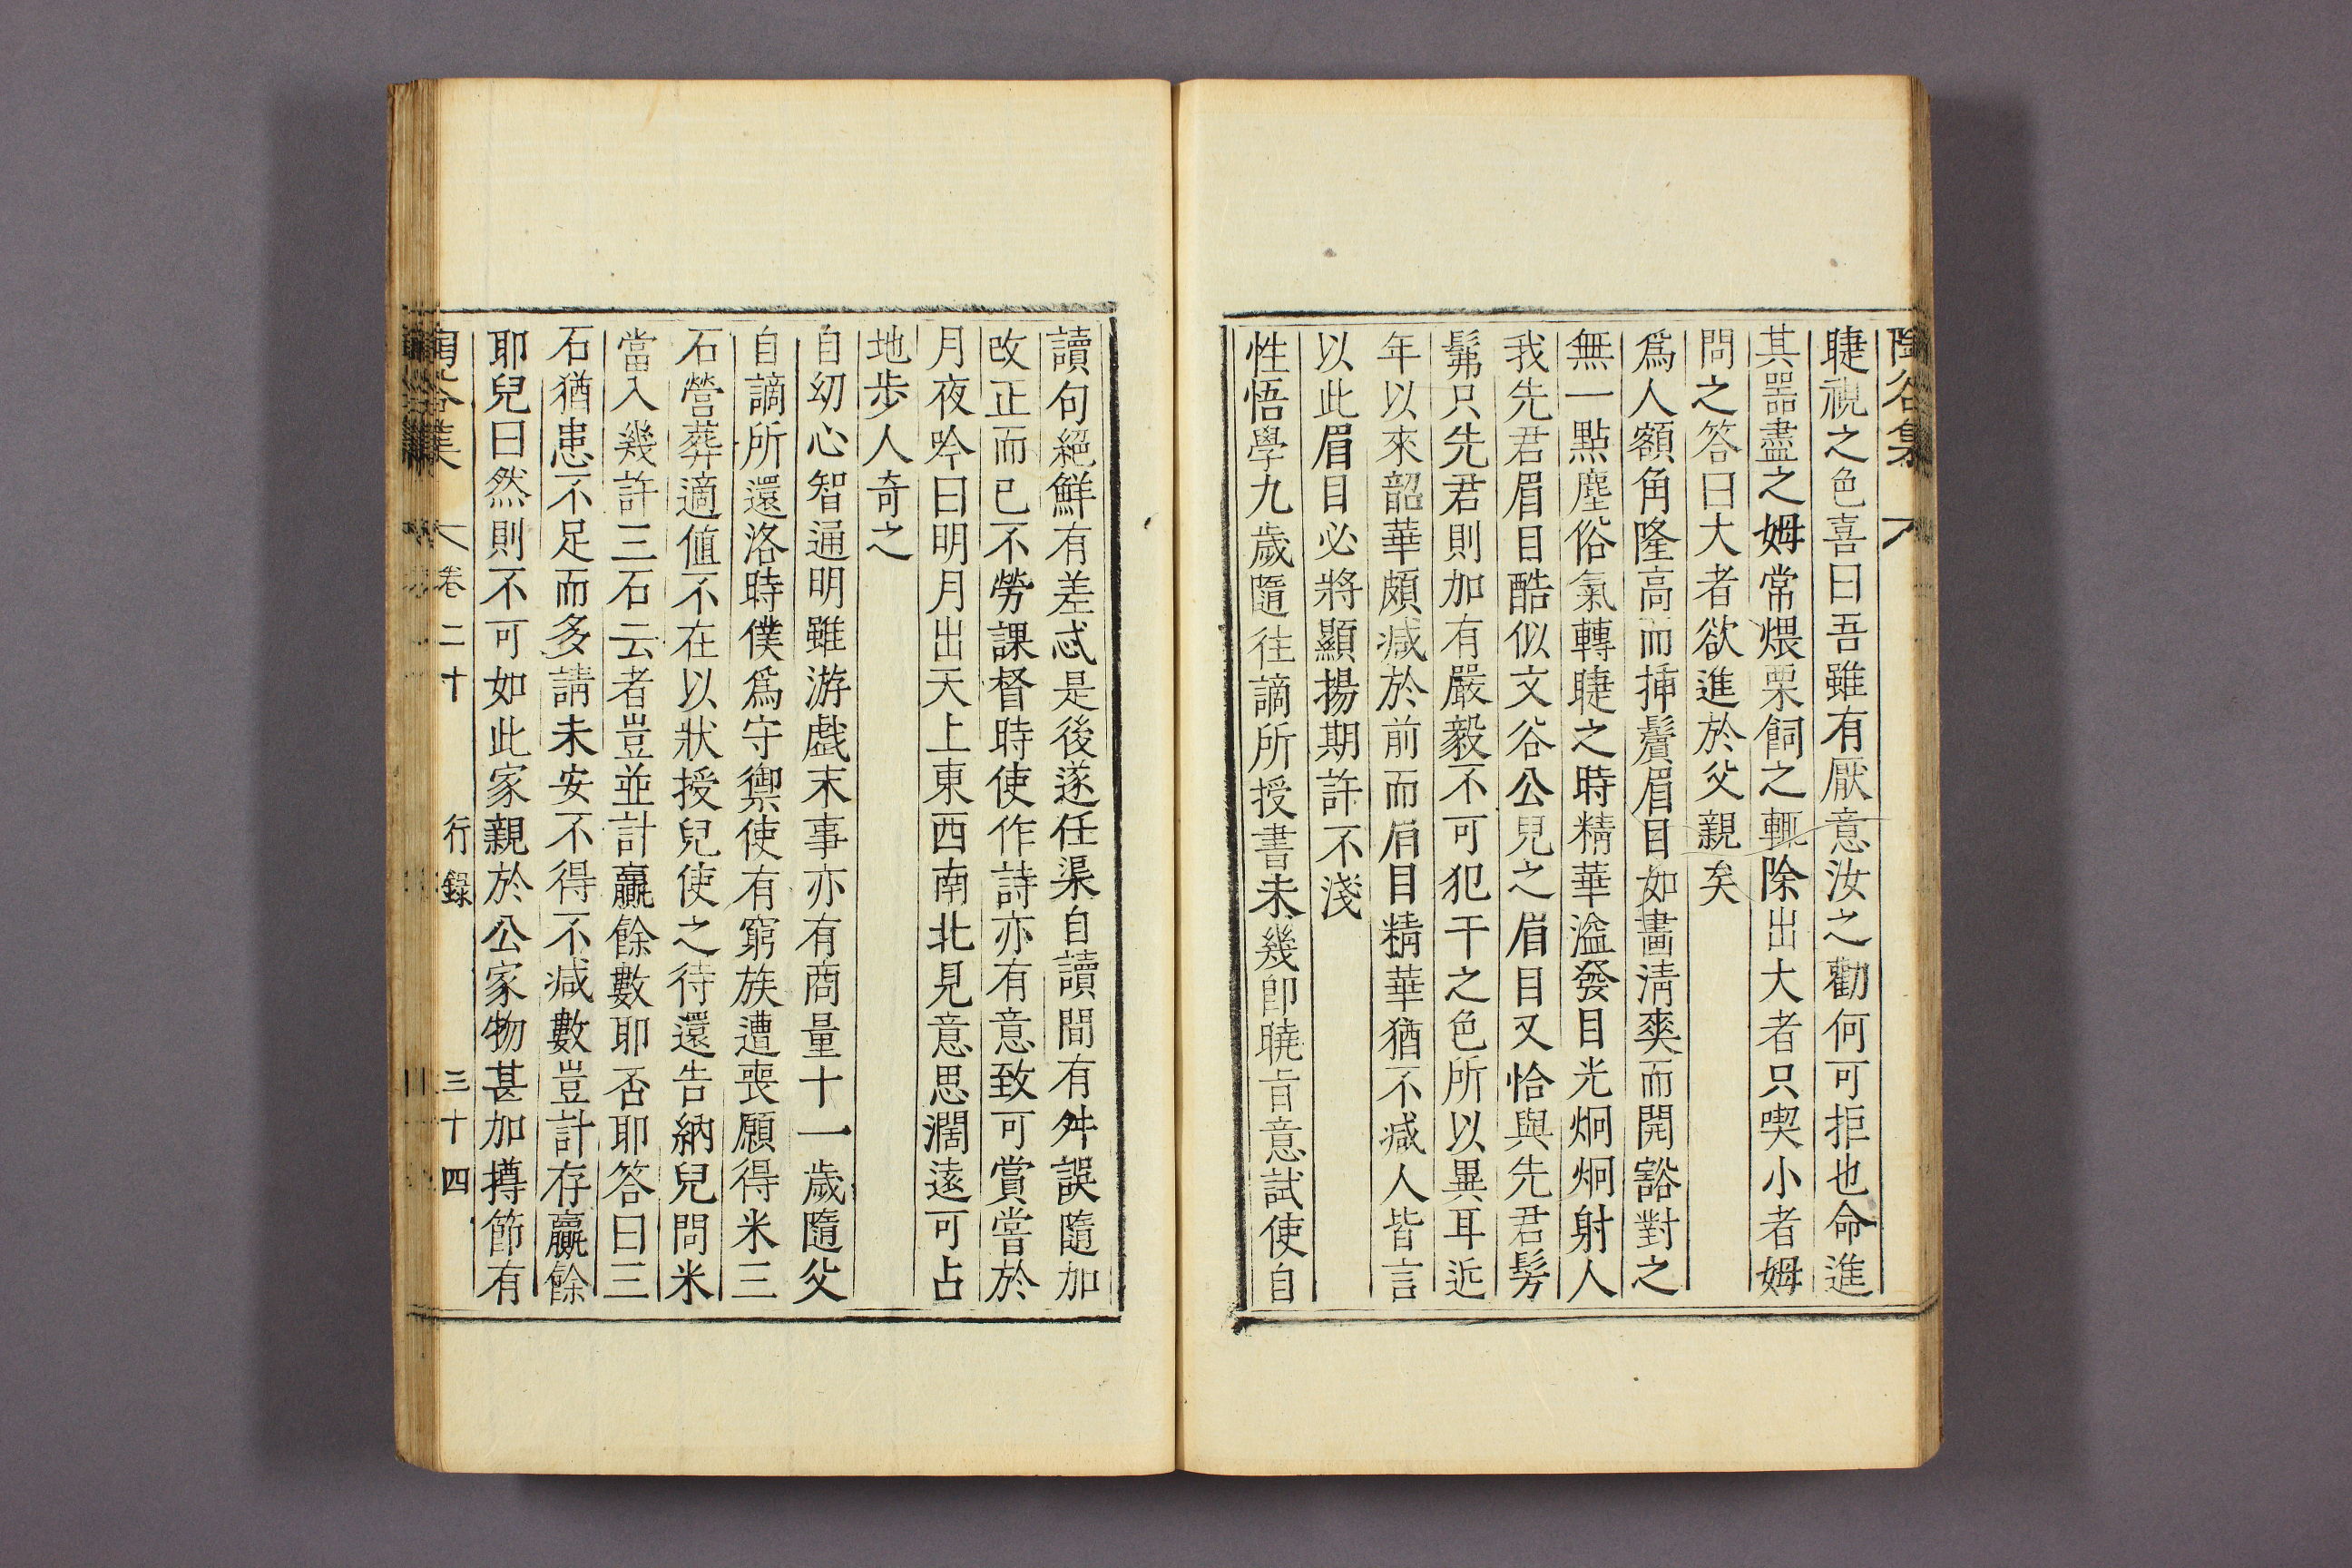 睫視之色喜曰吾雖有厭意汝之勸何可拒也命進
其器盡之姆常煨栗飼之輒除出大者只喫小者姆
問之答曰大者欲進於父親矣
爲人額角隆高而揷鬢眉目如畵淸爽而開豁對之
無一點塵俗氣轉睫之時精華溢發目光炯炯射人
我先君眉目酷似文谷公兒之眉目又恰與先君髣
髴只先君則加有嚴毅不可犯干之色所以異耳近
年以來韶華頗减於前而眉目精華猶不减人皆言
以此眉目必將顯揚期許不淺
性悟學九歲隨往謫所授書未幾卽曉旨意試使自
讀句絕鮮有差忒是後遂任渠自讀間有舛誤隨加
改正而已不勞課督時使作詩亦有意致可賞嘗於
月夜吟曰明月出天上東西南北見意思濶遠可占
地步人奇之
自幼心智通明雖游戱末事亦有商量十一歲隨父
自謫所還洛時僕爲守禦使有窮族遭喪願得米三
石營葬適値不在以狀授兒使之待還告納兒問米
當入幾許三石云者豈並計贏餘數耶否耶答曰三
石猶患不足而多請未安不得不减數豈計存贏餘
耶兒曰然則不可如此家親於公家物甚加撙節有
陶谷集 卷二十 行錄 三十四